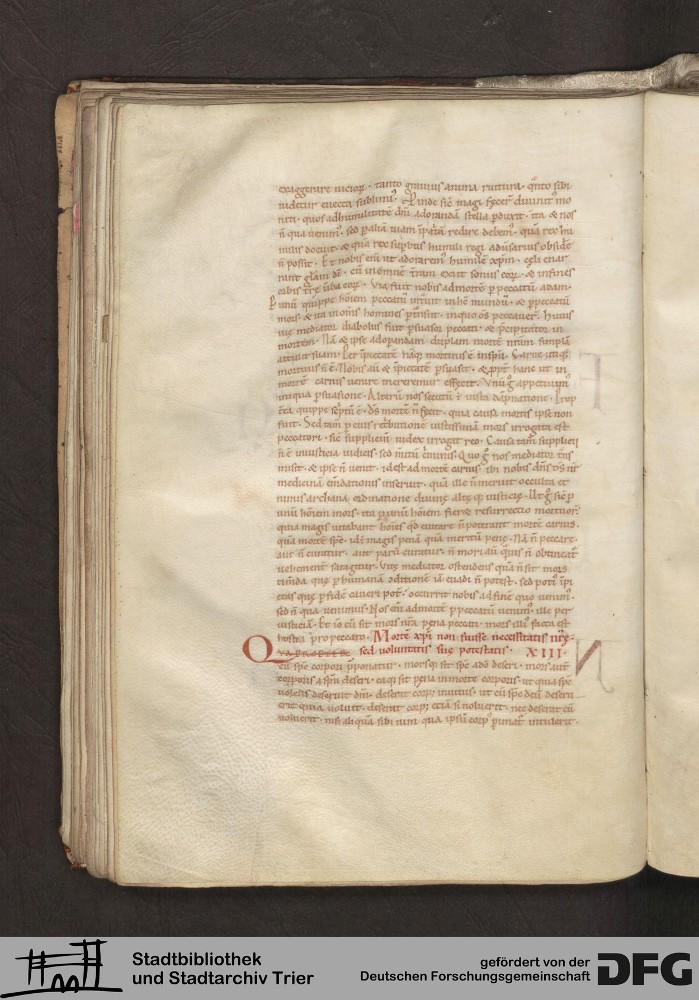 exaggerare uicioꝝ · tanto grauius anima ruitura · q̄nto sibi
uidetur euecta sublimiꝰ · Proinde sic̄ magi fecer̄ diuinit᷒ mo
niti · quos ad humilitatē dn̄i adorandā stella ꝑduxit · ita & nos
n̄ qua uenimꝰ · sed ꝑ aliā uiam in patriā redire debemꝰ · quā rex hu
milis docuit · & quā rex supbus humili regi aduersarius obsidere
n̄ possit · Et nobis eni ut adoraremꝰ humilē xp̄m · celi enar
rant gl̄am dī · cū in omnē trram exiit sonus eorꝝ · & in fines
orbis trę uerba eorꝝ · Via fuit nobis ad mortē ꝑ peccatū adam ·
Per unū quippe hōiem peccatū intrauit in hc̄ mundū · & ꝑ peccatū
mors · & ita in om̄s homines ptransiit · in quo om̄s peccauer̄ · Huius
uię mediator diabolus fuit psuasor peccati · & pcipitator in
mortem · Nā & ipse ad operandam duplam mortē nr̄am simplā
attulit suam · Per impietatē nāq; mortuus ē in spū · Carne utiq;
mortuus n̄ ē · Nobis aū & impietatē psuasit · & ꝓpt̄ hanc ut in
mortē carnis uenire mereremur effecit · Vnū g̊ appetiuimꝰ
iniqua psuasione · Alterū nos secutū ē iusta dāpnatione · Prop
terea quippe scriptū ē · Ds̄ mortē n̄ fecit · quia causa mortis ipse non
fuit · Sed tam̄ p eius retributione iustissima mors irrogata est
peccatori · sic̄ suppliciū iudex irrogat reo · Causa tam̄ supplicii
n̄ ē iniusticia iudicis · sed meritū criminis · Quo g̊ nos mediator mortis
misit · & ipse n̄ uenit · id est ad mortē carnis · ibi nobis dn̄s ds̄ nr̄
medicinā em̄dationis inseruit · quā ille n̄ meruit occulta et
nimis archana ordinatione diuinę altęq; iusticię · Ut g̊ sic̄ p
unū hōiem mors · ita ꝑ unū hōiem fieret resurrectio mortuorꝝ
quia magis uitabant hōies qd euitare n̄ poterant mortē carnis ·
quā mortē spc̄ · id ē magis penā quā meritū penę · Nā n̄ peccare
aut n̄ curatur · aut parū curatur · n̄ mori aū quis n̄ obtineat̄
uehement̄ satagitur · Vitę mediator ostendens quā n̄ sit mors
timenda quę ꝑ humanā conditionē iā euadi n̄ potest · sed potiꝰ impi
etas quę ꝑ fidē caueri pot̄ · occurrit nobis ad finē quo uenimꝰ ·
sed n̄ qua uenimus · Nos eni ad mortē ꝑ peccatū uenimꝰ · ille ꝑ
iusticiā · Et io cū sit mors nr̄a pena peccati · mors illiꝰ facta est
hostia pro peccato · Mortē xp̄i non fuisse necessitatis nr̄ę ·
QVAPROPTER sed voluntatis suę potestatis · XIII ·
cū spc̄ corpori pponatur · morsq; sit spc̄ a dō deseri · mors aut̄
corporis a spū deseri · eaq; sit pena in morte corporis · ut quia spc̄
uolens deseruit dm̄ · deserat corpꝰ inuitus · ut cū spc̄ deū deseru
erit quia uoluit · deserat corpꝰ etiā si noluerit · nec deserat cū
uoluerit · nisi aliquā sibi uim qua ipsū corpꝰ pimat̄ intulerit ·
Stadtbibliothek
und Stadtarchiv Trier
gefördert von der
Deutschen Forschungsgemeinschaft
DFG